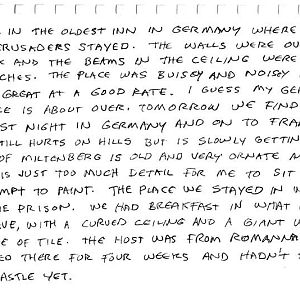 IN THE OLDEST INN IN GERMANY WHERE
CRUSADERS STAYED. THE WALLS WERE OV
AND THE BEAMS IN THE CEILING WERE
CHES. THE PLACE WAS BUISEY AND NOISY
GREAT AT A GOOD RATE. I GUESS MY GE
CE IS ABOUT OVER. TOMORROW WE FIND
ST NIGHT IN GERMANY AND ON TO FRA
TILL HURTS ON HILLS BUT IS SLOWLY GETTIN
OF MILTENBERG IS OLD AND VERY ORNATE A
IS JUST TOO MUCH DETAIL FOR ME TO SIT
MPT TO PAINT. THE PLACE WE STAYED IN W
E PRISON. WE HAD BREAKFAST IN WHAT
VE, WITH A CURVED CEILING AND A GIANT W
E OF TILE. THE HOST WAS FROM ROMANNA
ED THERE FOR FOUR WEEKS AND HADN'T S
ASTLE YET.